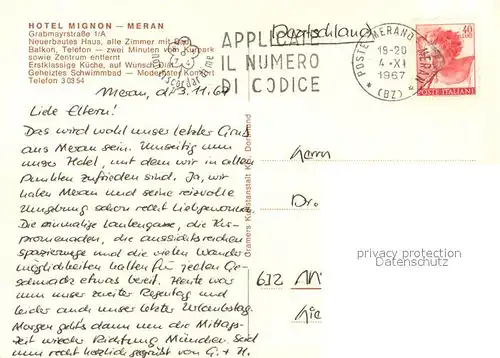 HOTEL MIGNON – MERAN
Grabmayrstraße 1/A
Neuerbautes Haus, alle Zimmer mit Bad
Balkon, Telefon – zwei Minuten vom Kurpark
sowie Zentrum entfernt
Erstklassige Küche, auf Wunsch Diät
Geheiztes Schwimmbad – Modernster Komfort
Telefon 30354
Deutschland
APPLICATE
IL NUMERO
DI CODICE
non scordar di me
POSTE MERANO MERAN
19-20
4-XI
1967
(BZ)
40
POSTE ITALIANE
Meran, d. 3.11.67
Liebe Eltern!
Das wird wohl unser letzter Gruß
aus Meran sein. Umseitig nun
unser Hotel, mit dem wir in allen
Punkten zufrieden sind. Ja, wir
haben Meran und seine reizvolle
Umgebung schon recht liebgewonnen.
Die einmalige Laubengasse, die Kur-
promenaden, die aussichtsreichen
Spaziergänge und die vielen Wander-
möglichkeiten halten für jeden Ge-
schmack etwas bereit. Heute war
nun unser zweiter Regentag und
leider auch unser letzter Urlaubstag.
Morgen geht's dann um die Mittags-
zeit wieder Richtung München. Seid
nun recht herzlich gegrüßt von G. + H.
Cramers Kunstanstalt KG, Dortmund
Herrn
Dr.
632
privacy protection
Datenschutz